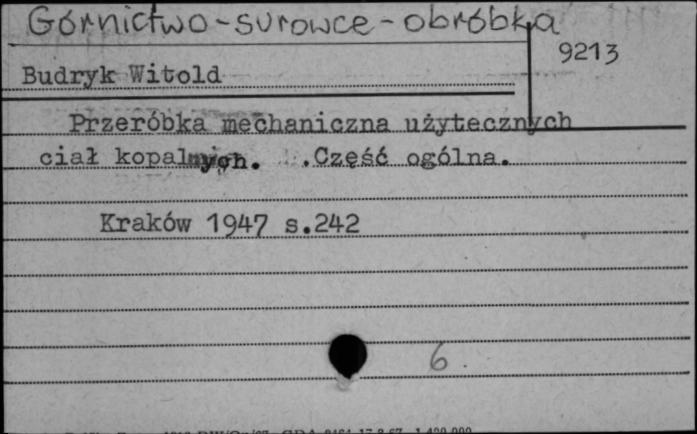 Górnictwo-surowce-obróbka
9213
Budryk Witold
Przeróbka mechaniczna użytecznych
ciał kopalnych. .Część ogólna.
Kraków 1947 s.242
6